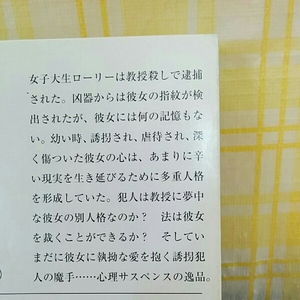 女子大生ローリーは教授殺しで逮捕
された。凶器からは彼女の指紋が検
出されたが、彼女には何の記憶もな
い。幼い時、誘拐され、虐待され、深
く傷ついた彼女の心は、あまりに辛
い現実を生き延びるために多重人格
を形成していた。犯人は教授に夢中
な彼女の別人格なのか？　法は彼女
を裁くことができるか？　そしてい
まだに彼女に執拗な愛を抱く誘拐犯
人の魔手……心理サスペンスの逸品。
)